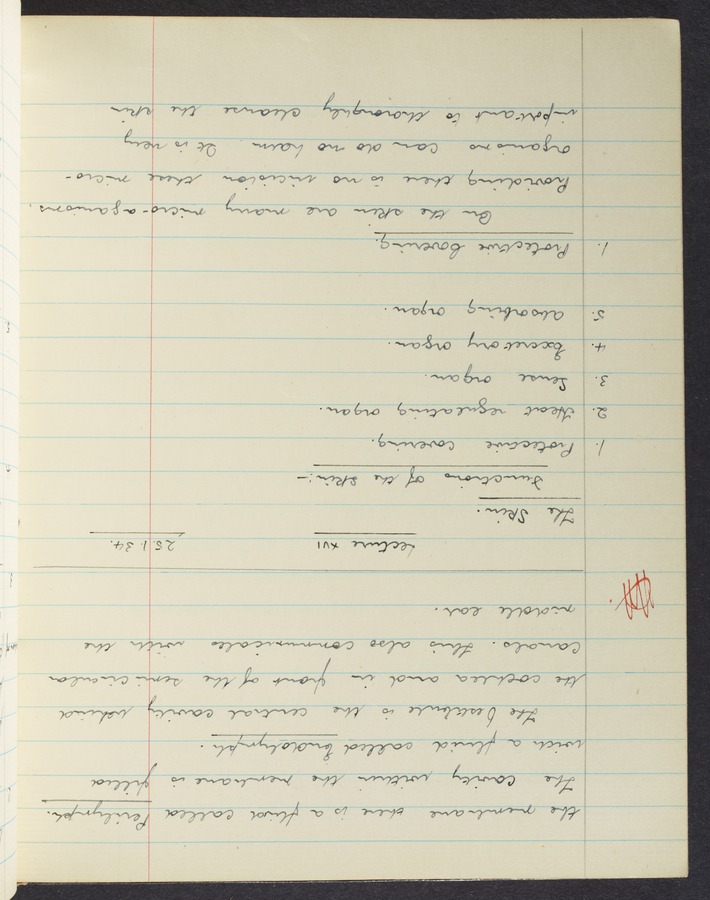 the membrane there is a fluid called Perilymph.
The cavity within the membrane is filled
with a fluid called Endolymph.
The Vestibule is the central cavity behind
the cochlea and in front of the semi circular
canals. This also communicates with the
middle ear.
Lecture XVI 25.1.34.
The Skin.
Functions of the Skin:-
1. Protective covering.
2. Heat regulating organ.
3. Sense organ.
4. Excretory organ.
5. Absorbing organ.
1. Protective Covering.
On the skin are many micro-organisms.
Providing there is no incision these micro-
organisms can do no harm. It is very
important to thoroughly cleanse the skin